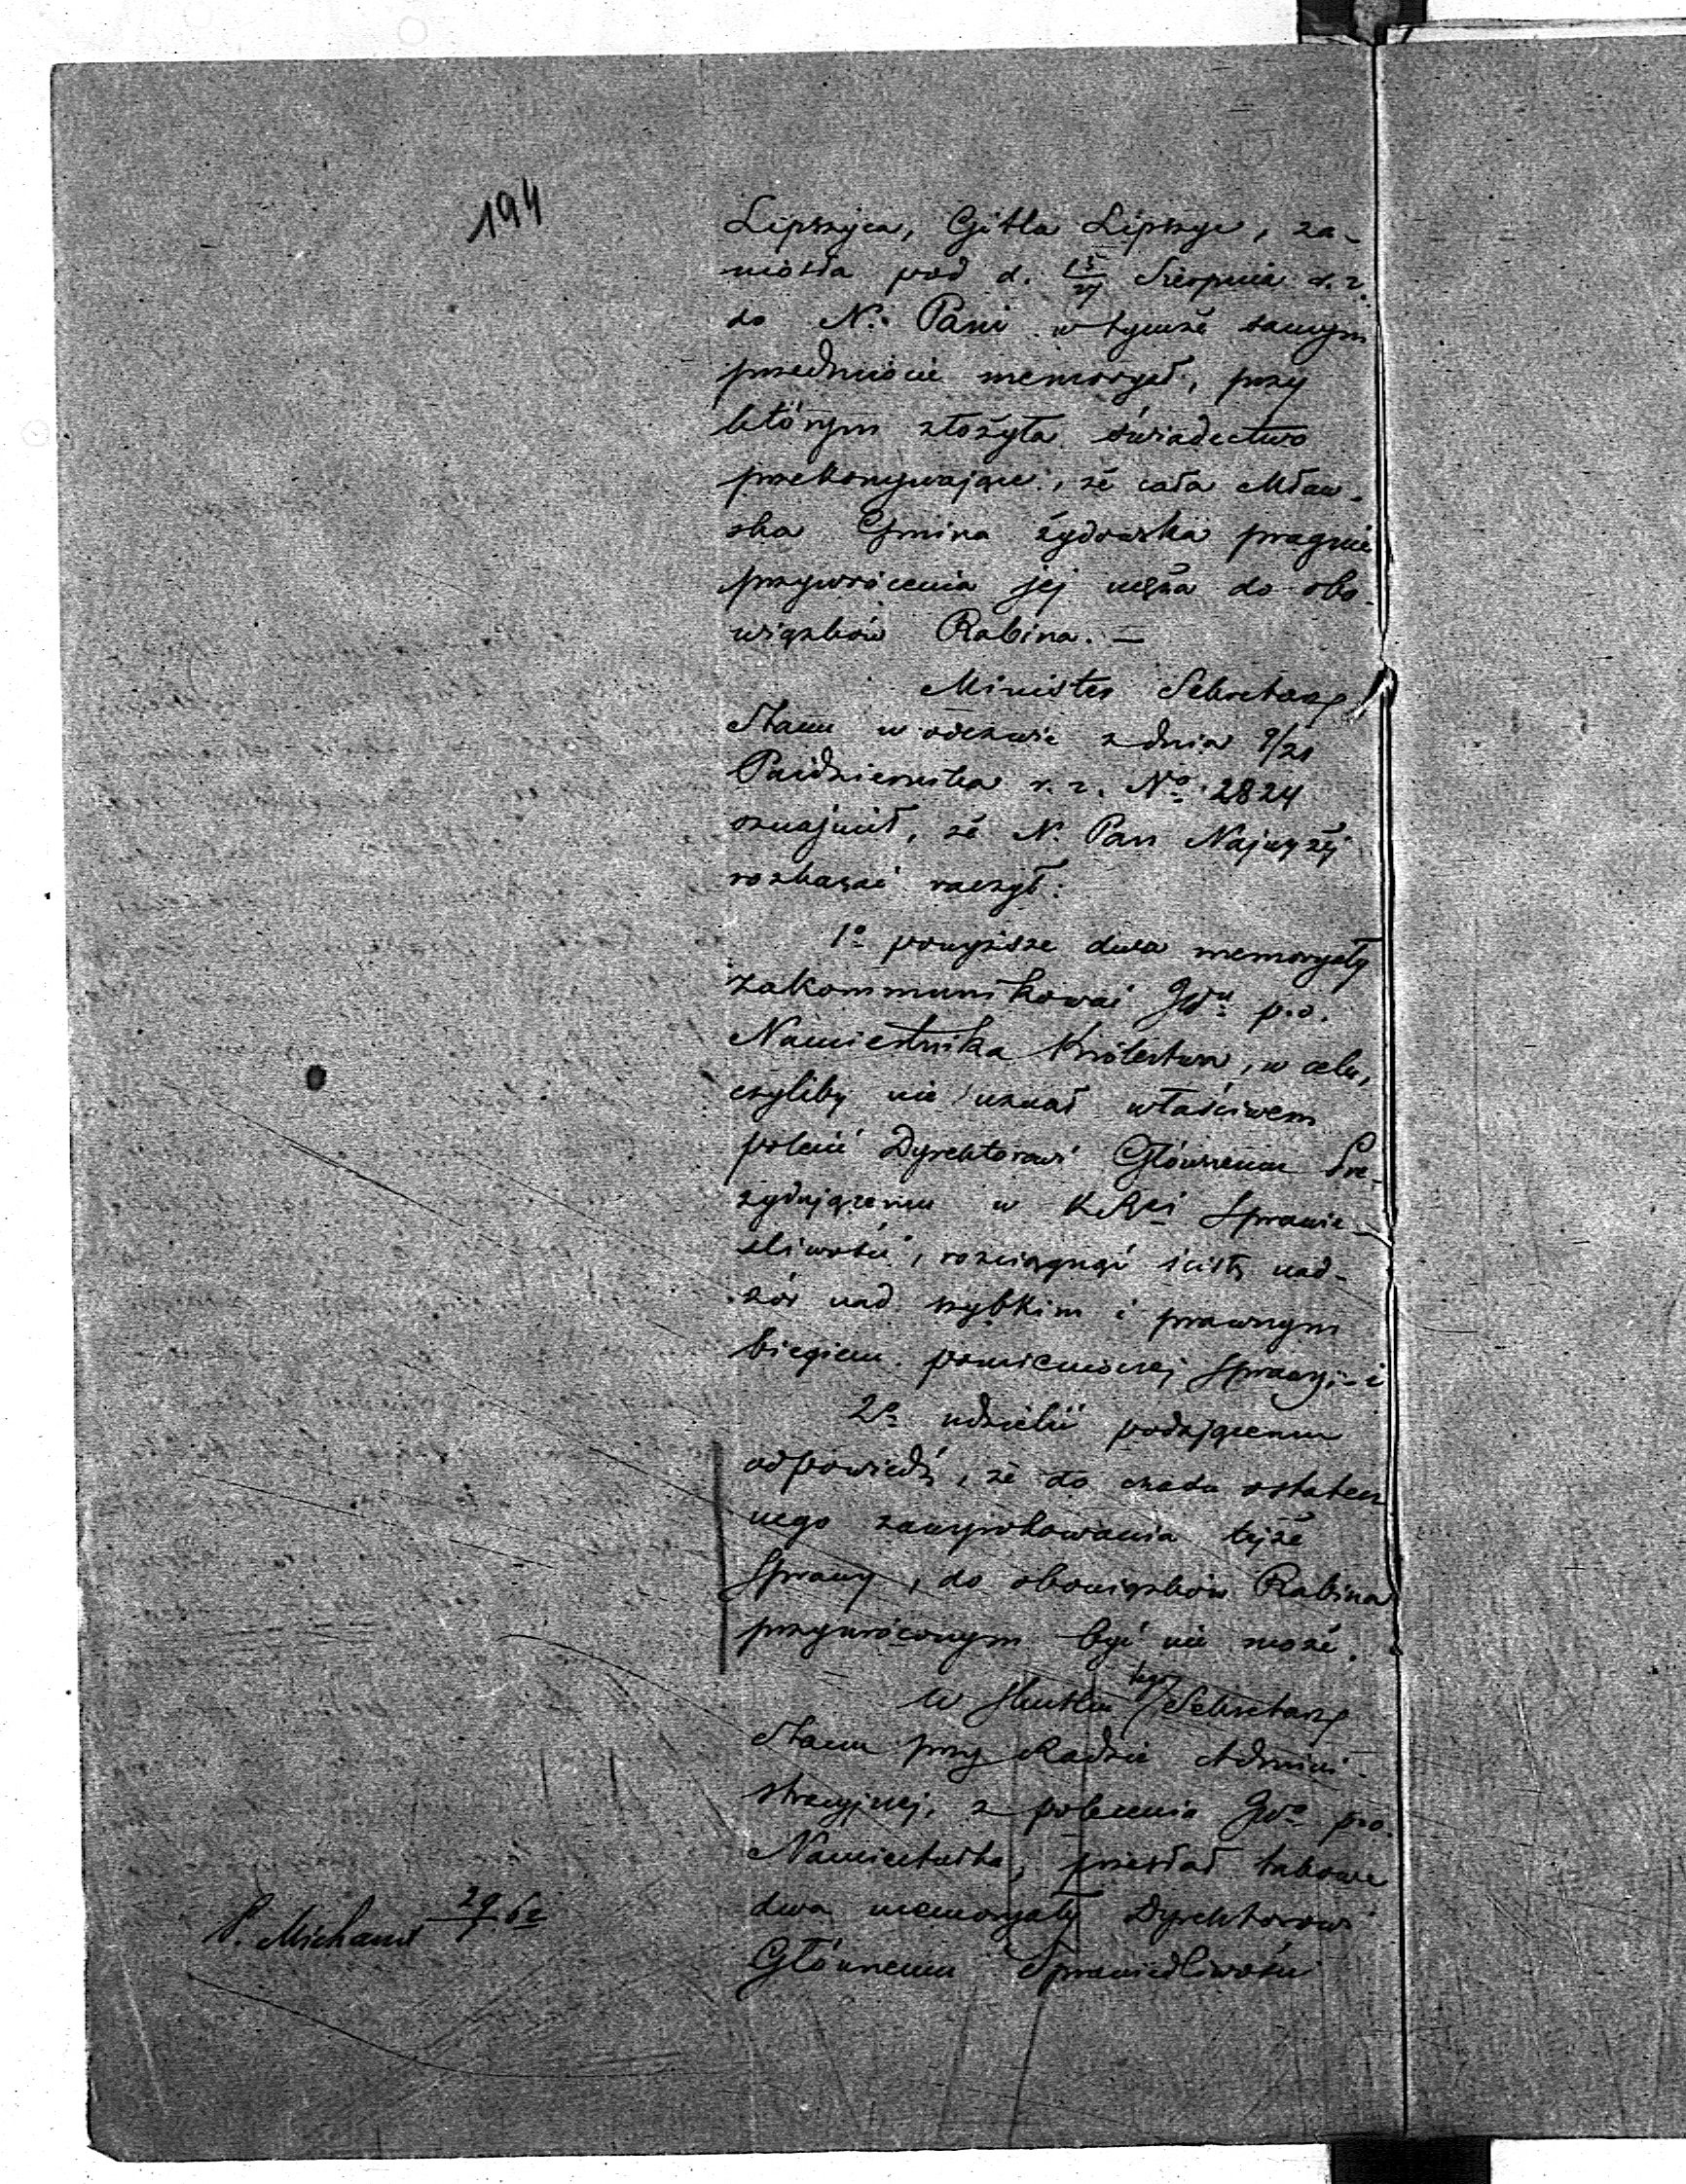 194
Lipszyca, Gitla Lipszyc, za-
niosła pod d. 15/27 Sierpnia r. z.
do N. Pani w tymże samym
przedmiocie memoryał, przy
którym złożyła świadectwo
przekonywające, że cała Mław-
ska Gmina żydowska pragnie
przywrócenia jej męża do obo-
wiązków Rabina. —
Minister Sekretarz
Stanu w odezwie z dnia 9/21
Października r. z. No 2824
oznajmił, że N. Pan Najwyżej
rozkazać raczył:
1o powyższe dwa memoryały
zakommunikować JWu p. o.
Namiestnika Królestwa, w celu,
czyliby nie uznał właściwem
polecić Dyrektorowi Głównemu Pre-
zydującemu w K Rei Sprawie-
dliwości, rozciągnąć ścisły nad-
zór nad szybkim i prawnym
biegiem pomienionej Sprawy, - i
2o udzielić podającemu
odpowiedź, że do czasu ostatecz
nego zawyrokowania tejże
Sprawy, do obowiązków Rabina
przywróconym być nie może.
W skutku tego Sekretarz
Stanu przy Radzie Admini-
stracyjnej, z polecenia JWo p. o.
Namiestnika, przesłał takowe
dwa memoryały Dyrektorowi
Głównemu Sprawiedliwości
29/7 62